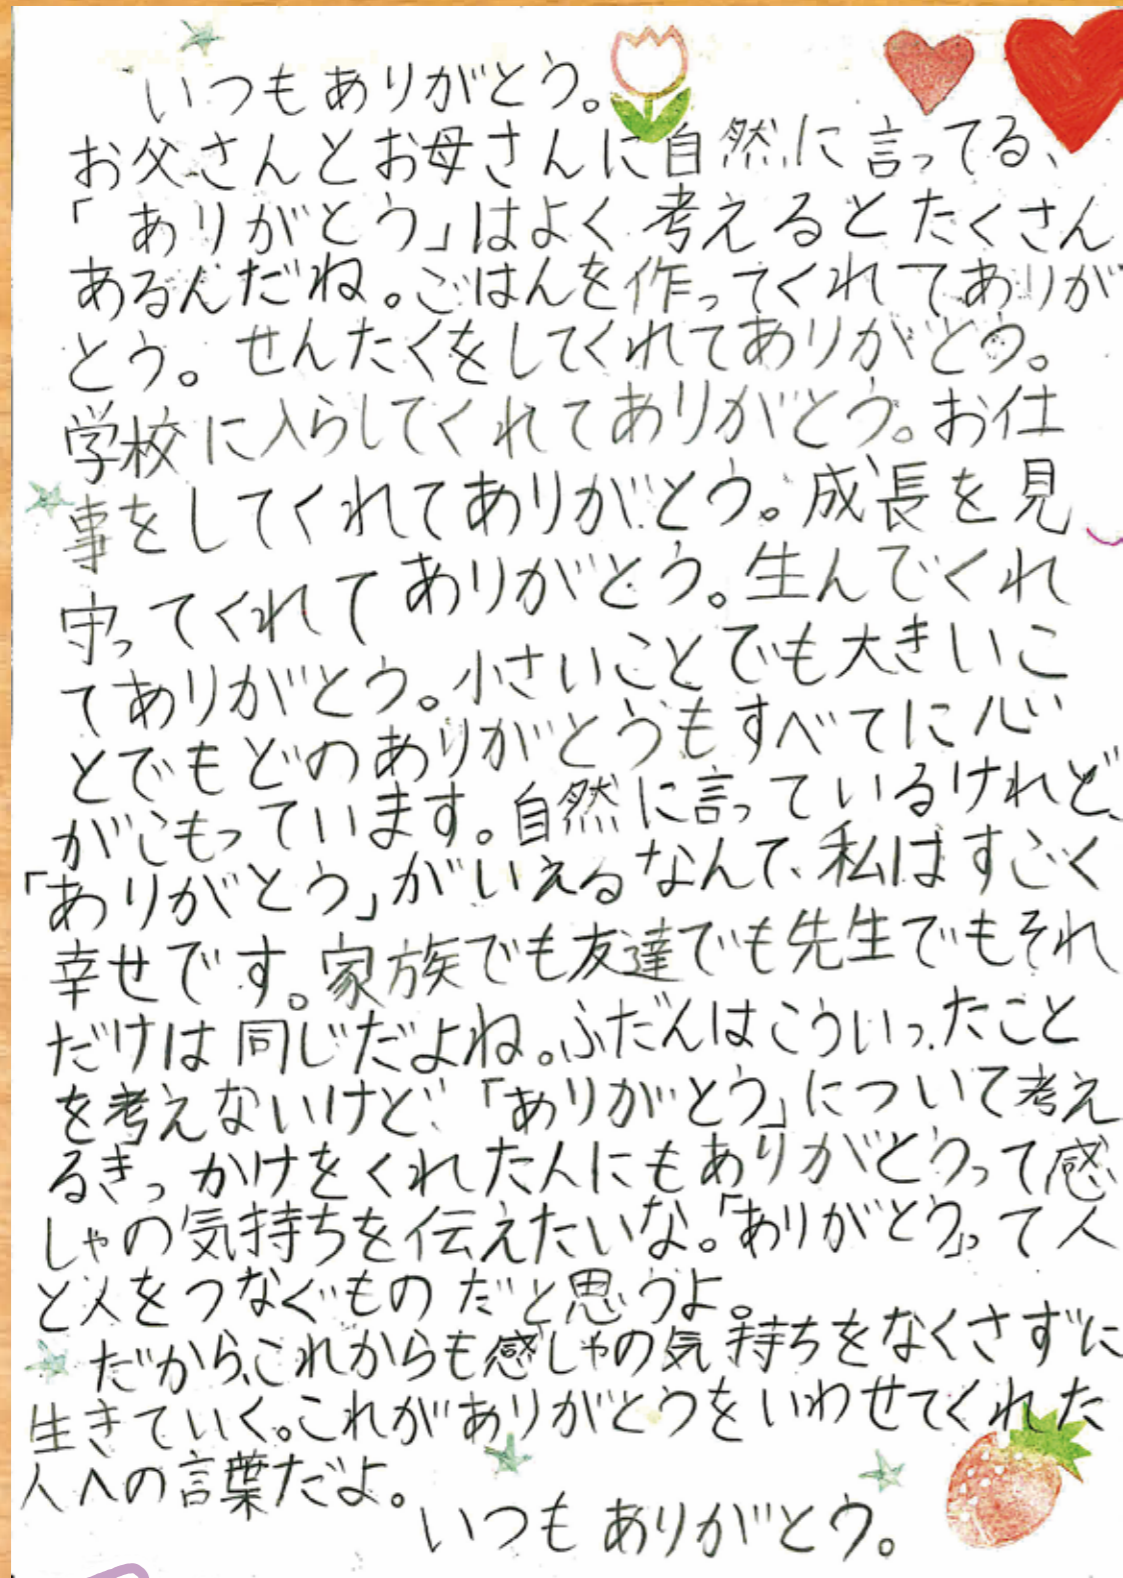 いつもありがとう。
お父さんとお母さんに自然に言ってる、
「ありがとう」はよく考えるとたくさん
あるんだね。ごはんを作ってくれてありが
とう。せんたくをしてくれてありがとう。
学校に入らしてくれてありがとう。お仕
事をしてくれてありがとう。成長を見
守ってくれてありがとう。生んでくれ
てありがとう。小さいことでも大きいこ
とでもどのありがとうもすべてに心
がこもっています。自然に言っているけれど、
「ありがとう」がいえるなんて、私はすごく
幸せです。家族でも友達でも先生でもそれ
だけは同じだよね。ふだんはこういったこと
を考えないけど、「ありがとう」について考え
るきっかけをくれた人にもありがとうって感
しゃの気持ちを伝えたいな。「ありがとう」って人
と人をつなぐものだと思うよ。
だから、これからも感しゃの気持ちをなくさずに
生きていく。これがありがとうをいわせてくれた
人への言葉だよ。
いつもありがとう。